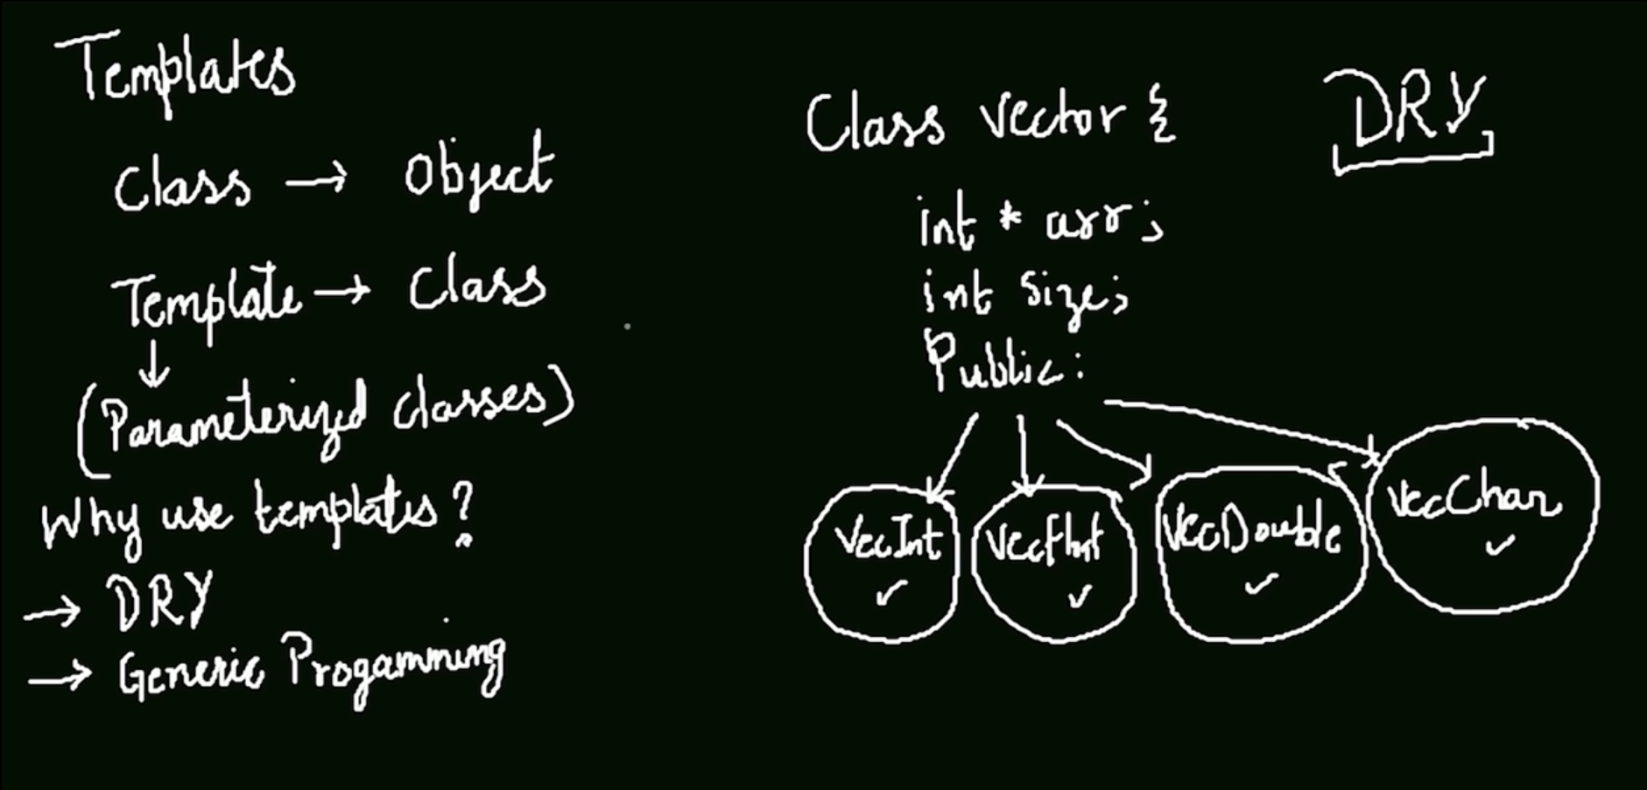 Templates
Class → Object
Template → Class
↓
(Parameterized classes)
Why use templates?
→ DRY
→ Generic Progamming
Class Vector {
int * arr;
int size;
Public:
VecInt ✓
VecDouble ✓
VecChar ✓
DRY